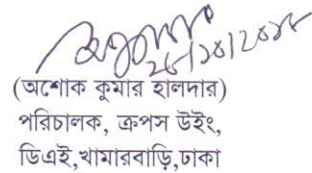 (অশোক কুমার হালদার)
পরিচালক, ক্রপস উইং,
ডিএই,খামারবাড়ি,ঢাকা